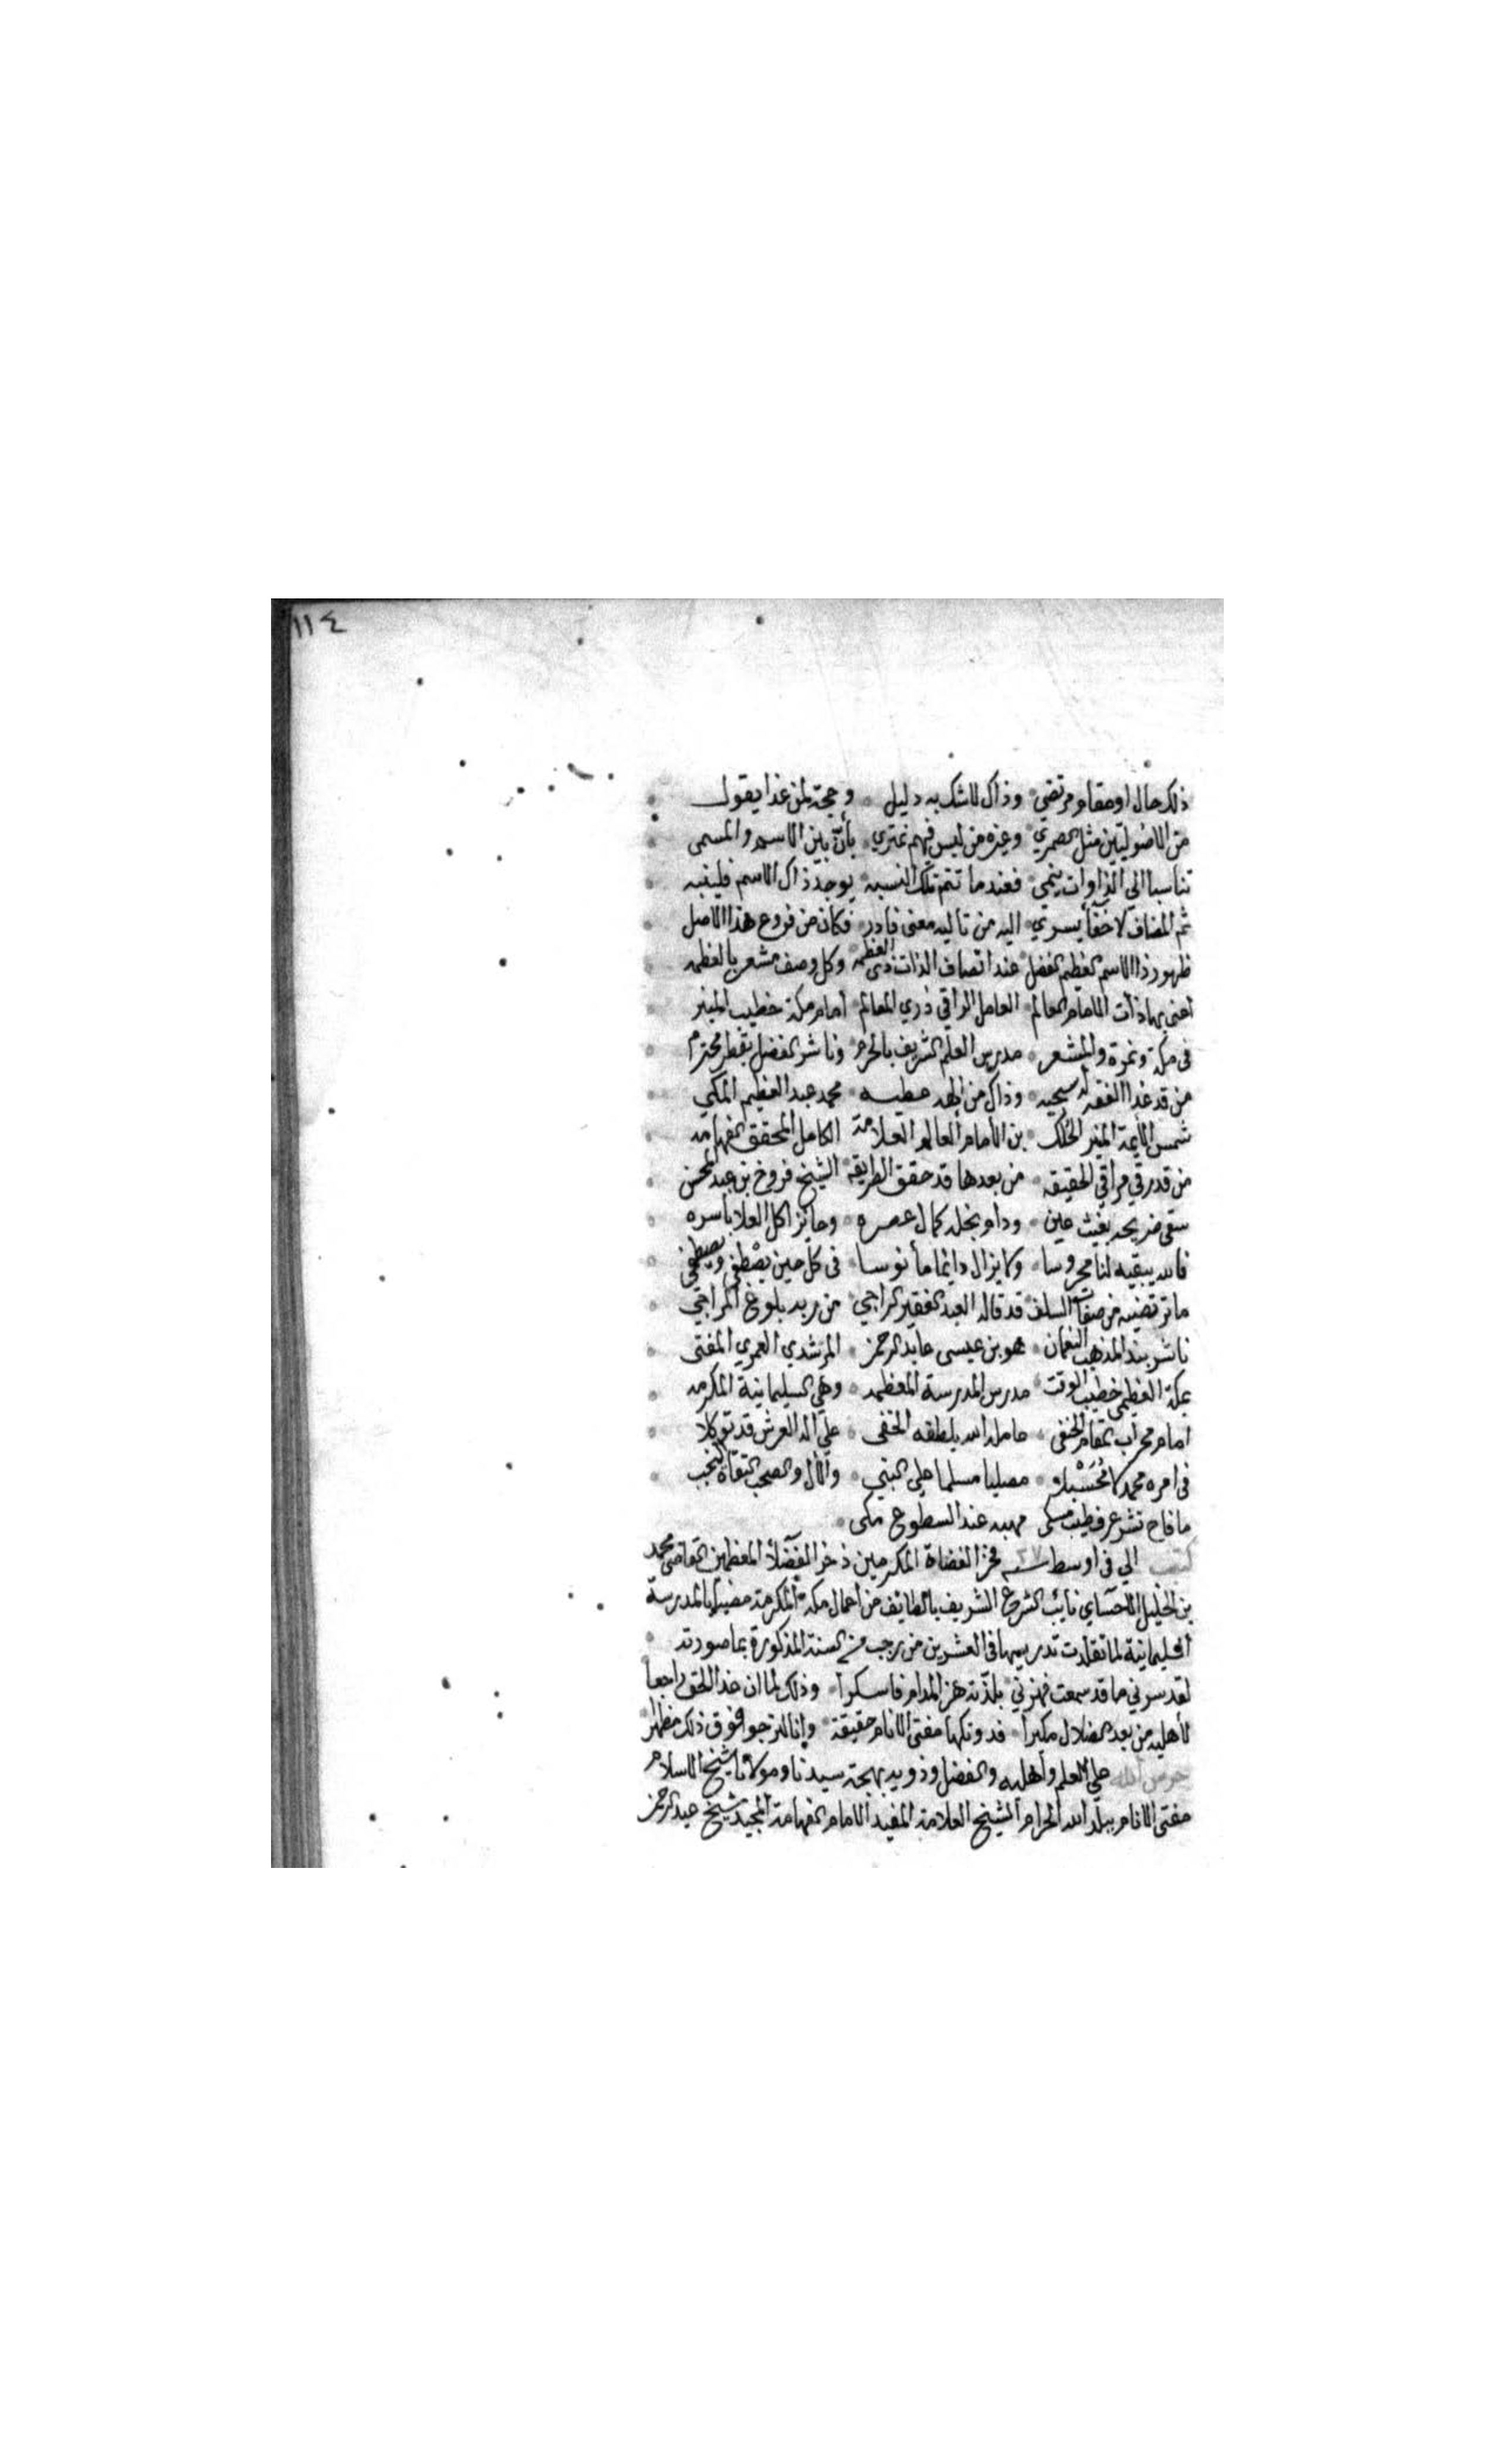 ١١٤
ذلك حال او مقام مرتضي وذاك لاشك به دليل وحجة لمن غدا يقول
من الاصوليين مثل الصمري وغيره من ليس فيهم نمتري بأنّ بين الاسم والمسمى
تناسبا الى الذاوات ينمى فعندما تتم تلك النسبه يوجد ذاك الاسم فلينبه
ثم المضاف لاحقا يسري اليه من تاليه معنى فادر فكان من فروع هذا الاصل
ظهور ذا الاسم العظيم الفضل عند اتصاف الذات ذى العظمه وكل وصف مشعر بالعظمه
اعنى بها ذات الامام العالم العامل الراقي ذري المعالم امام مكة خطيب المنبر
فى مكة ونمرة والمشعر مدرس العلم الشريف بالحرم وناشر الفضل بقطر محترم
من قد غدا الفقه له سجيه وذاك من الهه عطيه محمد عبد العظيم المكي
شمس الأيمة المنير الحلك بن الأمام العالم العلامة الكامل المحقق الفهامه
من قد رقي مراقي الحقيقه من بعدها قد حقق الطريقه الشيخ فروخ بن عبد المحسن
سقى ضريحه بغيث هين ودام نجله كمال عصره وحائز اكل العلا بأسره
فالله يبقيه لنا محروسا ولا يزال دائما مأنوسا فى كل حين يصطفى ويصطفي
ما ترتضيه من صفات السلف قد قاله العبد الفقير الراجي من ربه بلوغ المراجي
ناشر بند المذهب النعمان هو بن عيسى عابد الرحمن المرشدي العمري المفتى
بمكة العظمى خطيب الوقت مدرس المدرسة المعظمه وهي السليمانية المكرمه
امام محراب المقام الحنفى عامله الله بلطفه الخفى على اله العرش قد توكلا
فى امره محمد لا محسبلا مصليا مسلما على النبي والآل والصحب التقاة النجب
ما فاح نشر عرف طيب مسكى مهبه عند السطوع مكى
كتب الي فى اوسط سنة فخر القضاة المكرمين ذخر الفضلأ المعظمين القاضى محمد
بن الخليل الاحساي نائب الشرع الشريف بالطائف من اعمال مكة المكرمة مهنيا بالمدرسة
السليمانية لما تقلدت تدريسها فى العشرين من رجب من السنة المذكورة بما صورته
لقد سرني ما قد سمعت فهزني بلذته هز المدام فاسكرا وذلك لما ان غدا الحق راجعا
لأهليه من بعد الضلال مكبرا فدونكها مفتى الانام حقيقة وإنا لنرجو فوق ذلك مظهرا
حرس الله على العلم وأهليه والفضل وذويه بهجة سيدنا ومولانا شيخ الاسلام
مفتى الانام ببلد الله الحرام الشيخ العلامة المفيد الامام الفهامة المجيد شيخ عبد الرحمن